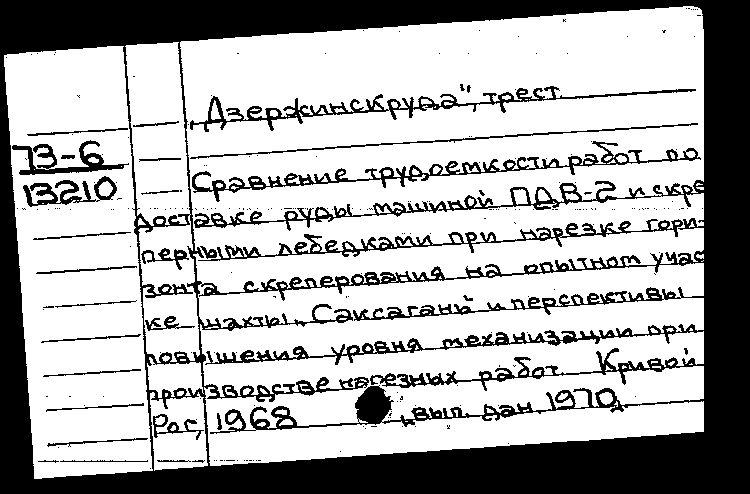 „Дзержинскруда", трест.
73-6
13210
Сравнение трудоемкости работ по
доставке руды машиной ПДВ-2 и скре
перными лебедками при нарезке гори-
зонта скреперования на опытном учас
ке шахты „Саксагань" и перспективы
повышения уровня механизации при
производстве нарезных работ. Кривой
Рог, 1968 „вып. дан. 1970